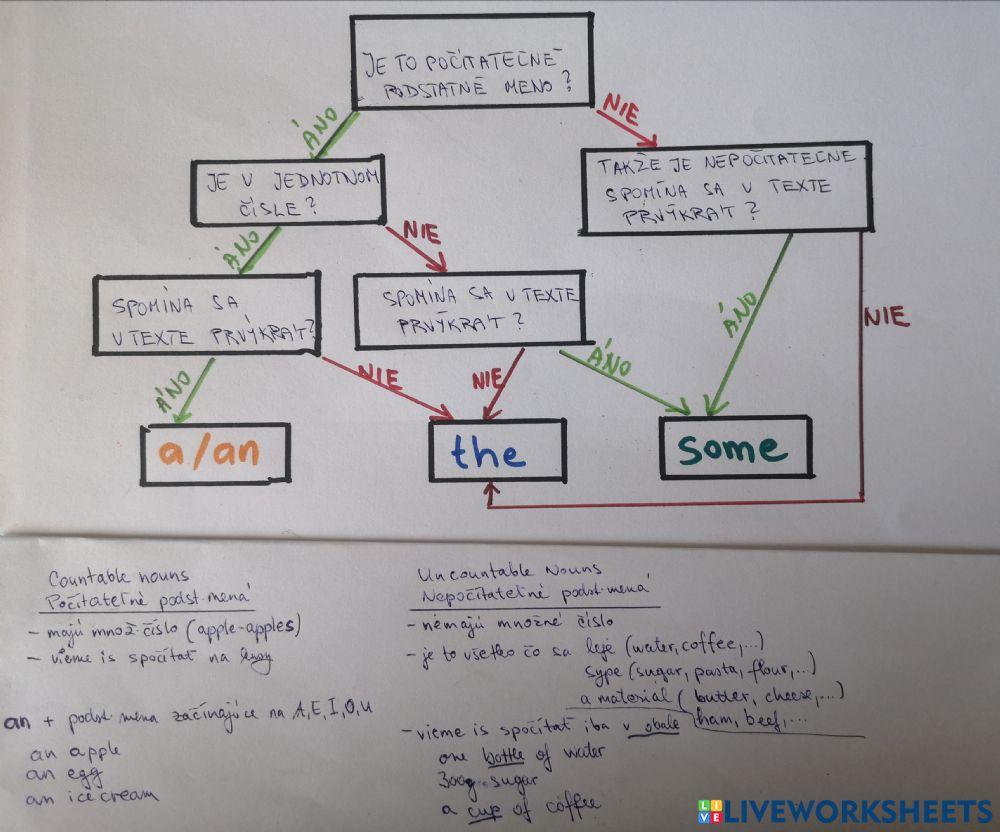 JE TO POČÍTATEĽNÉ
PODSTATNÉ MENO?
ÁNO
NIE
JE V JEDNOTNOM
ČÍSLE?
TAKŽE JE NEPOČÍTATEĽNÉ
SPOMÍNA SA V TEXTE
PRVÝKRÁT?
ÁNO
NIE
SPOMÍNA SA
V TEXTE PRVÝKRÁT?
SPOMÍNA SA V TEXTE
PRVÝKRÁT?
ÁNO
NIE
ÁNO
NIE
NIE
ÁNO
a/an
the
some
Countable nouns
Počítateľné podst. mená
- majú množ. číslo (apple-apples)
- vieme is spočítať na
an + podst. mena začínajúce na A, E, I, O, U
an apple
an egg
an ice cream
Uncountable Nouns
Nepočítateľné podst. mená
- nemajú množné číslo
- je to všetko čo sa leje (water, coffee,...)
sype (sugar, pasta, flour,...)
a material (butter, cheese,...)
ham, beef,...
- vieme is spočítať iba v obale
one bottle of water
300g sugar
a cup of coffee
LIVE
LIVEWORKSHEETS